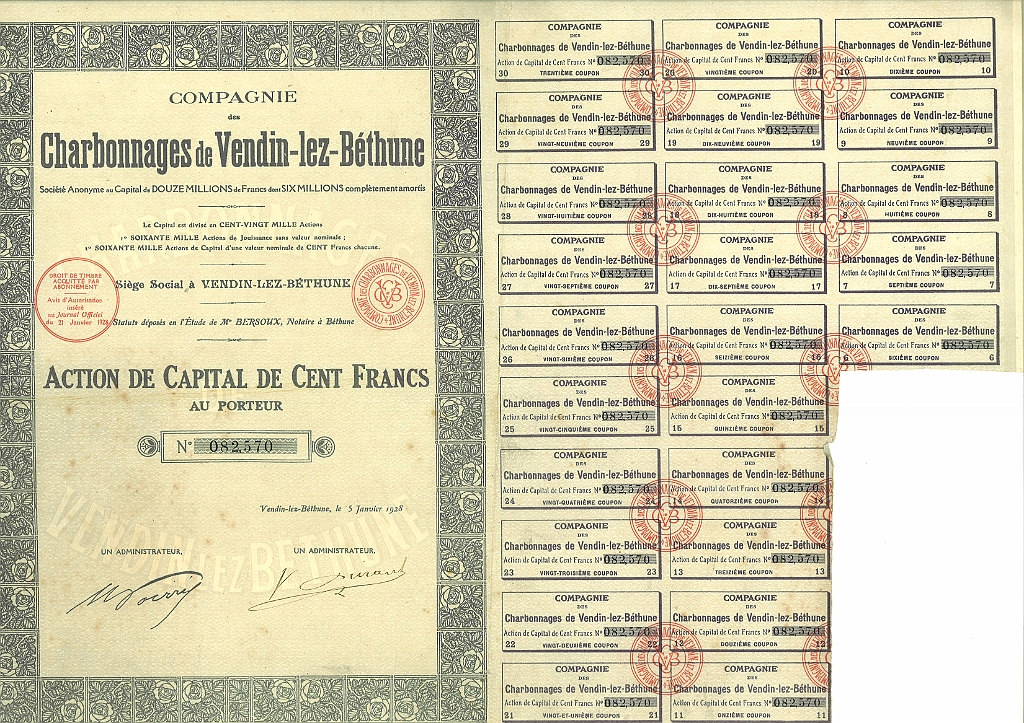 COMPAGNIE
des
Charbonnages de Vendin-lez-Béthune
Société Anonyme au Capital de DOUZE MILLIONS de Francs dont SIX MILLIONS complètement amortis
Le Capital est divisé en CENT-VINGT MILLE Actions
1º SOIXANTE MILLE Actions de Jouissance sans valeur nominale ;
2º SOIXANTE MILLE Actions de Capital d'une valeur nominale de CENT Francs chacune.
DROIT DE TIMBRE
ACQUITTÉ PAR
ABONNEMENT
Avis d'Autorisation
inséré
au Journal Officiel
du 21 Janvier 1928
Siège Social à VENDIN-LEZ-BÉTHUNE
COMPAGNIE DES CHARBONNAGES DE VENDIN-LEZ-BÉTHUNE
Statuts déposés en l'Étude de Me BERSOUX, Notaire à Béthune
ACTION DE CAPITAL DE CENT FRANCS
AU PORTEUR
Nº 082,570
Vendin-lez-Béthune, le 5 Janvier 1928
VENDIN LEZ BETHUNE
UN ADMINISTRATEUR,
UN ADMINISTRATEUR,
COMPAGNIE
DES
Charbonnages de Vendin-lez-Béthune
Action de Capital de Cent Francs Nº 082,570
30 TRENTIÈME COUPON 30
COMPAGNIE
DES
Charbonnages de Vendin-lez-Béthune
Action de Capital de Cent Francs Nº 082,570
20 VINGTIÈME COUPON 20
COMPAGNIE
DES
Charbonnages de Vendin-lez-Béthune
Action de Capital de Cent Francs Nº 082,570
10 DIXIÈME COUPON 10
COMPAGNIE
DES
Charbonnages de Vendin-lez-Béthune
Action de Capital de Cent Francs Nº 082,570
29 VINGT-NEUVIÈME COUPON 29
COMPAGNIE
DES
Charbonnages de Vendin-lez-Béthune
Action de Capital de Cent Francs Nº 082,570
19 DIX-NEUVIÈME COUPON 19
COMPAGNIE
DES
Charbonnages de Vendin-lez-Béthune
Action de Capital de Cent Francs Nº 082,570
9 NEUVIÈME COUPON 9
COMPAGNIE
DES
Charbonnages de Vendin-lez-Béthune
Action de Capital de Cent Francs Nº 082,570
28 VINGT-HUITIÈME COUPON 28
COMPAGNIE
DES
Charbonnages de Vendin-lez-Béthune
Action de Capital de Cent Francs Nº 082,570
18 DIX-HUITIÈME COUPON 18
COMPAGNIE
DES
Charbonnages de Vendin-lez-Béthune
Action de Capital de Cent Francs Nº 082,570
8 HUITIÈME COUPON 8
COMPAGNIE
DES
Charbonnages de Vendin-lez-Béthune
Action de Capital de Cent Francs Nº 082,570
27 VINGT-SEPTIÈME COUPON 27
COMPAGNIE
DES
Charbonnages de Vendin-lez-Béthune
Action de Capital de Cent Francs Nº 082,570
17 DIX-SEPTIÈME COUPON 17
COMPAGNIE
DES
Charbonnages de Vendin-lez-Béthune
Action de Capital de Cent Francs Nº 082,570
7 SEPTIÈME COUPON 7
COMPAGNIE
DES
Charbonnages de Vendin-lez-Béthune
Action de Capital de Cent Francs Nº 082,570
26 VINGT-SIXIÈME COUPON 26
COMPAGNIE
DES
Charbonnages de Vendin-lez-Béthune
Action de Capital de Cent Francs Nº 082,570
16 SEIZIÈME COUPON 16
COMPAGNIE
DES
Charbonnages de Vendin-lez-Béthune
Action de Capital de Cent Francs Nº 082,570
6 SIXIÈME COUPON 6
COMPAGNIE
DES
Charbonnages de Vendin-lez-Béthune
Action de Capital de Cent Francs Nº 082,570
25 VINGT-CINQUIÈME COUPON 25
COMPAGNIE
DES
Charbonnages de Vendin-lez-Béthune
Action de Capital de Cent Francs Nº 082,570
15 QUINZIÈME COUPON 15
COMPAGNIE
DES
Charbonnages de Vendin-lez-Béthune
Action de Capital de Cent Francs Nº 082,570
24 VINGT-QUATRIÈME COUPON 24
COMPAGNIE
DES
Charbonnages de Vendin-lez-Béthune
Action de Capital de Cent Francs Nº 082,570
14 QUATORZIÈME COUPON 14
COMPAGNIE
DES
Charbonnages de Vendin-lez-Béthune
Action de Capital de Cent Francs Nº 082,570
23 VINGT-TROISIÈME COUPON 23
COMPAGNIE
DES
Charbonnages de Vendin-lez-Béthune
Action de Capital de Cent Francs Nº 082,570
13 TREIZIÈME COUPON 13
COMPAGNIE
DES
Charbonnages de Vendin-lez-Béthune
Action de Capital de Cent Francs Nº 082,570
22 VINGT-DEUXIÈME COUPON 22
COMPAGNIE
DES
Charbonnages de Vendin-lez-Béthune
Action de Capital de Cent Francs Nº 082,570
12 DOUZIÈME COUPON 12
COMPAGNIE
DES
Charbonnages de Vendin-lez-Béthune
Action de Capital de Cent Francs Nº 082,570
21 VINGT-ET-UNIÈME COUPON 21
COMPAGNIE
DES
Charbonnages de Vendin-lez-Béthune
Action de Capital de Cent Francs Nº 082,570
11 ONZIÈME COUPON 11